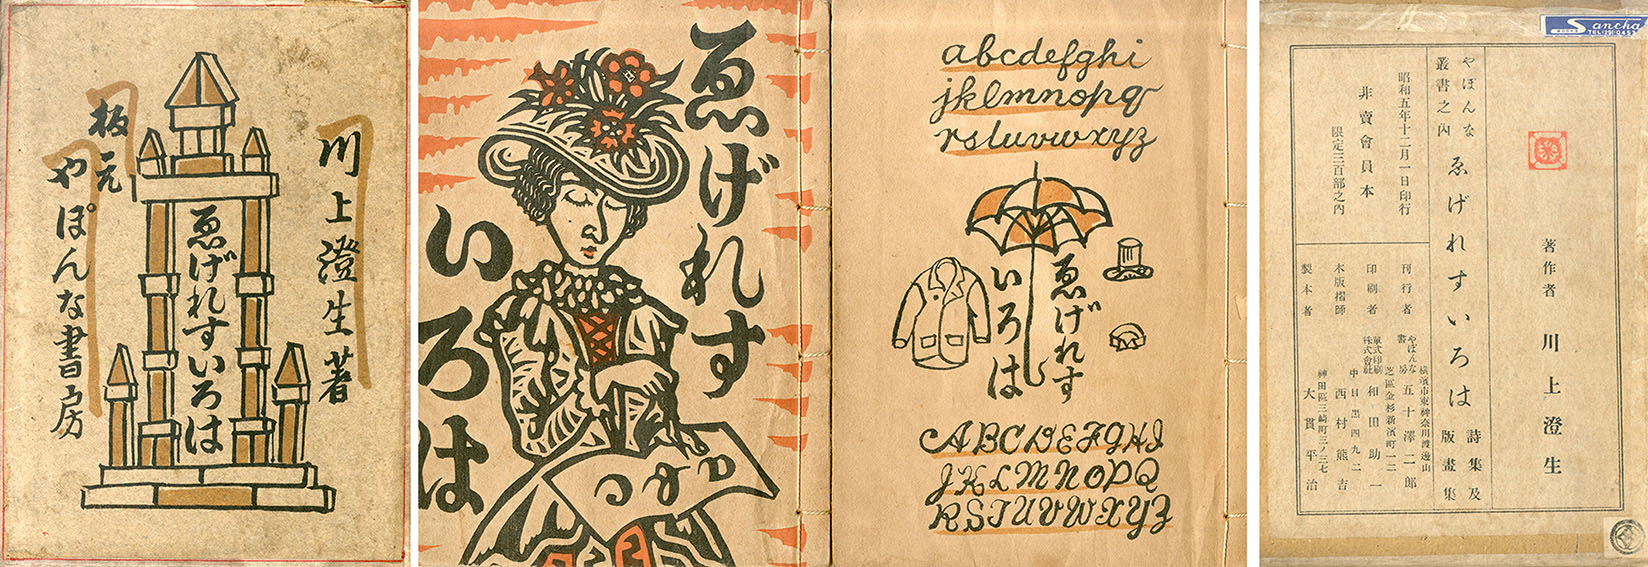 川上澄生著
ゑげれすいろは
板元
やぽんな書房
ゑげれす
いろは
abcdefghi
jklmnopq
rstuvwxyz
ゑげれす
いろは
ABCDEFGHI
JKLMNOPQ
RSTUVWXYZ
Sancha
BOOKS
著作者 川上澄生
やぽんな
叢書之内
ゑげれすいろは
詩集及
版畫集
昭和五年十二月一日印行
非賣會員本
限定三百部之内
刊行者
横濱市東神奈川渡邊山
やぽんな
書房
五十澤二郎
印刷者
芝區金杉新濱町一二
單式印刷
株式會社
和田助一
木版摺師
中目黒四九二
西村熊吉
製本者
神田區三崎町三ノ三七
大貫平治